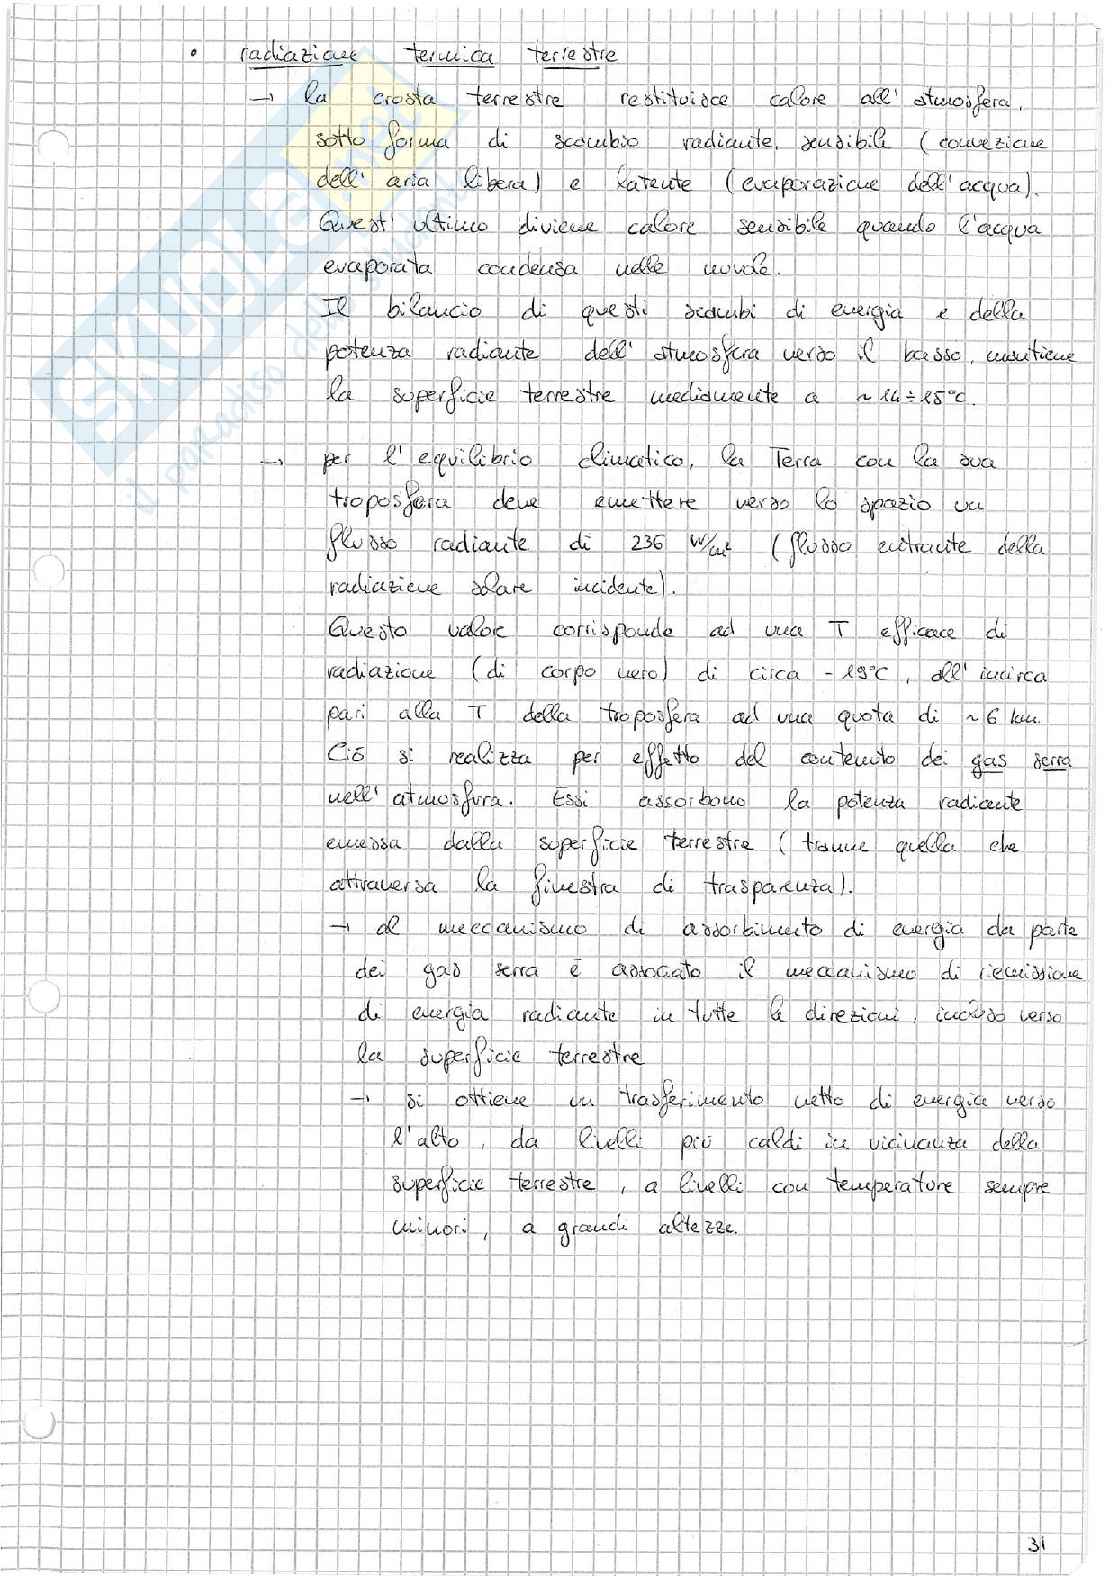 • radiazione termica terrestre
→ la crosta terrestre restituisce calore all'atmosfera,
sotto forma di scambio radiante, sensibile (convezione
dell'aria libera) e latente (evaporazione dell'acqua).
Quest'ultimo diviene calore sensibile quando l'acqua
evaporata condensa nelle nuvole.
Il bilancio di questi scambi di energia e della
potenza radiante dell'atmosfera verso il basso, mantiene
la superficie terrestre mediamente a ~ 14÷15°C.
→ per l'equilibrio climatico, la Terra con la sua
troposfera deve emettere verso lo spazio un
flusso radiante di 236 W/m² (flusso entrante della
radiazione solare incidente).
Questo valore corrisponde ad una T efficace di
radiazione (di corpo nero) di circa -19°C, all'incirca
pari alla T della troposfera ad una quota di ~6 km.
Ciò si realizza per effetto del contenuto dei gas serra
nell'atmosfera. Essi assorbono la potenza radiante
emessa dalla superficie terrestre (tranne quella che
attraversa la finestra di trasparenza).
→ al meccanismo di assorbimento di energia da parte
dei gas serra è associato il meccanismo di riemissione
di energia radiante in tutte le direzioni, incluso verso
la superficie terrestre
→ si ottiene un trasferimento netto di energia verso
l'alto, da livelli più caldi in vicinanza della
superficie terrestre, a livelli con temperature sempre
minori, a grandi altezze.
31